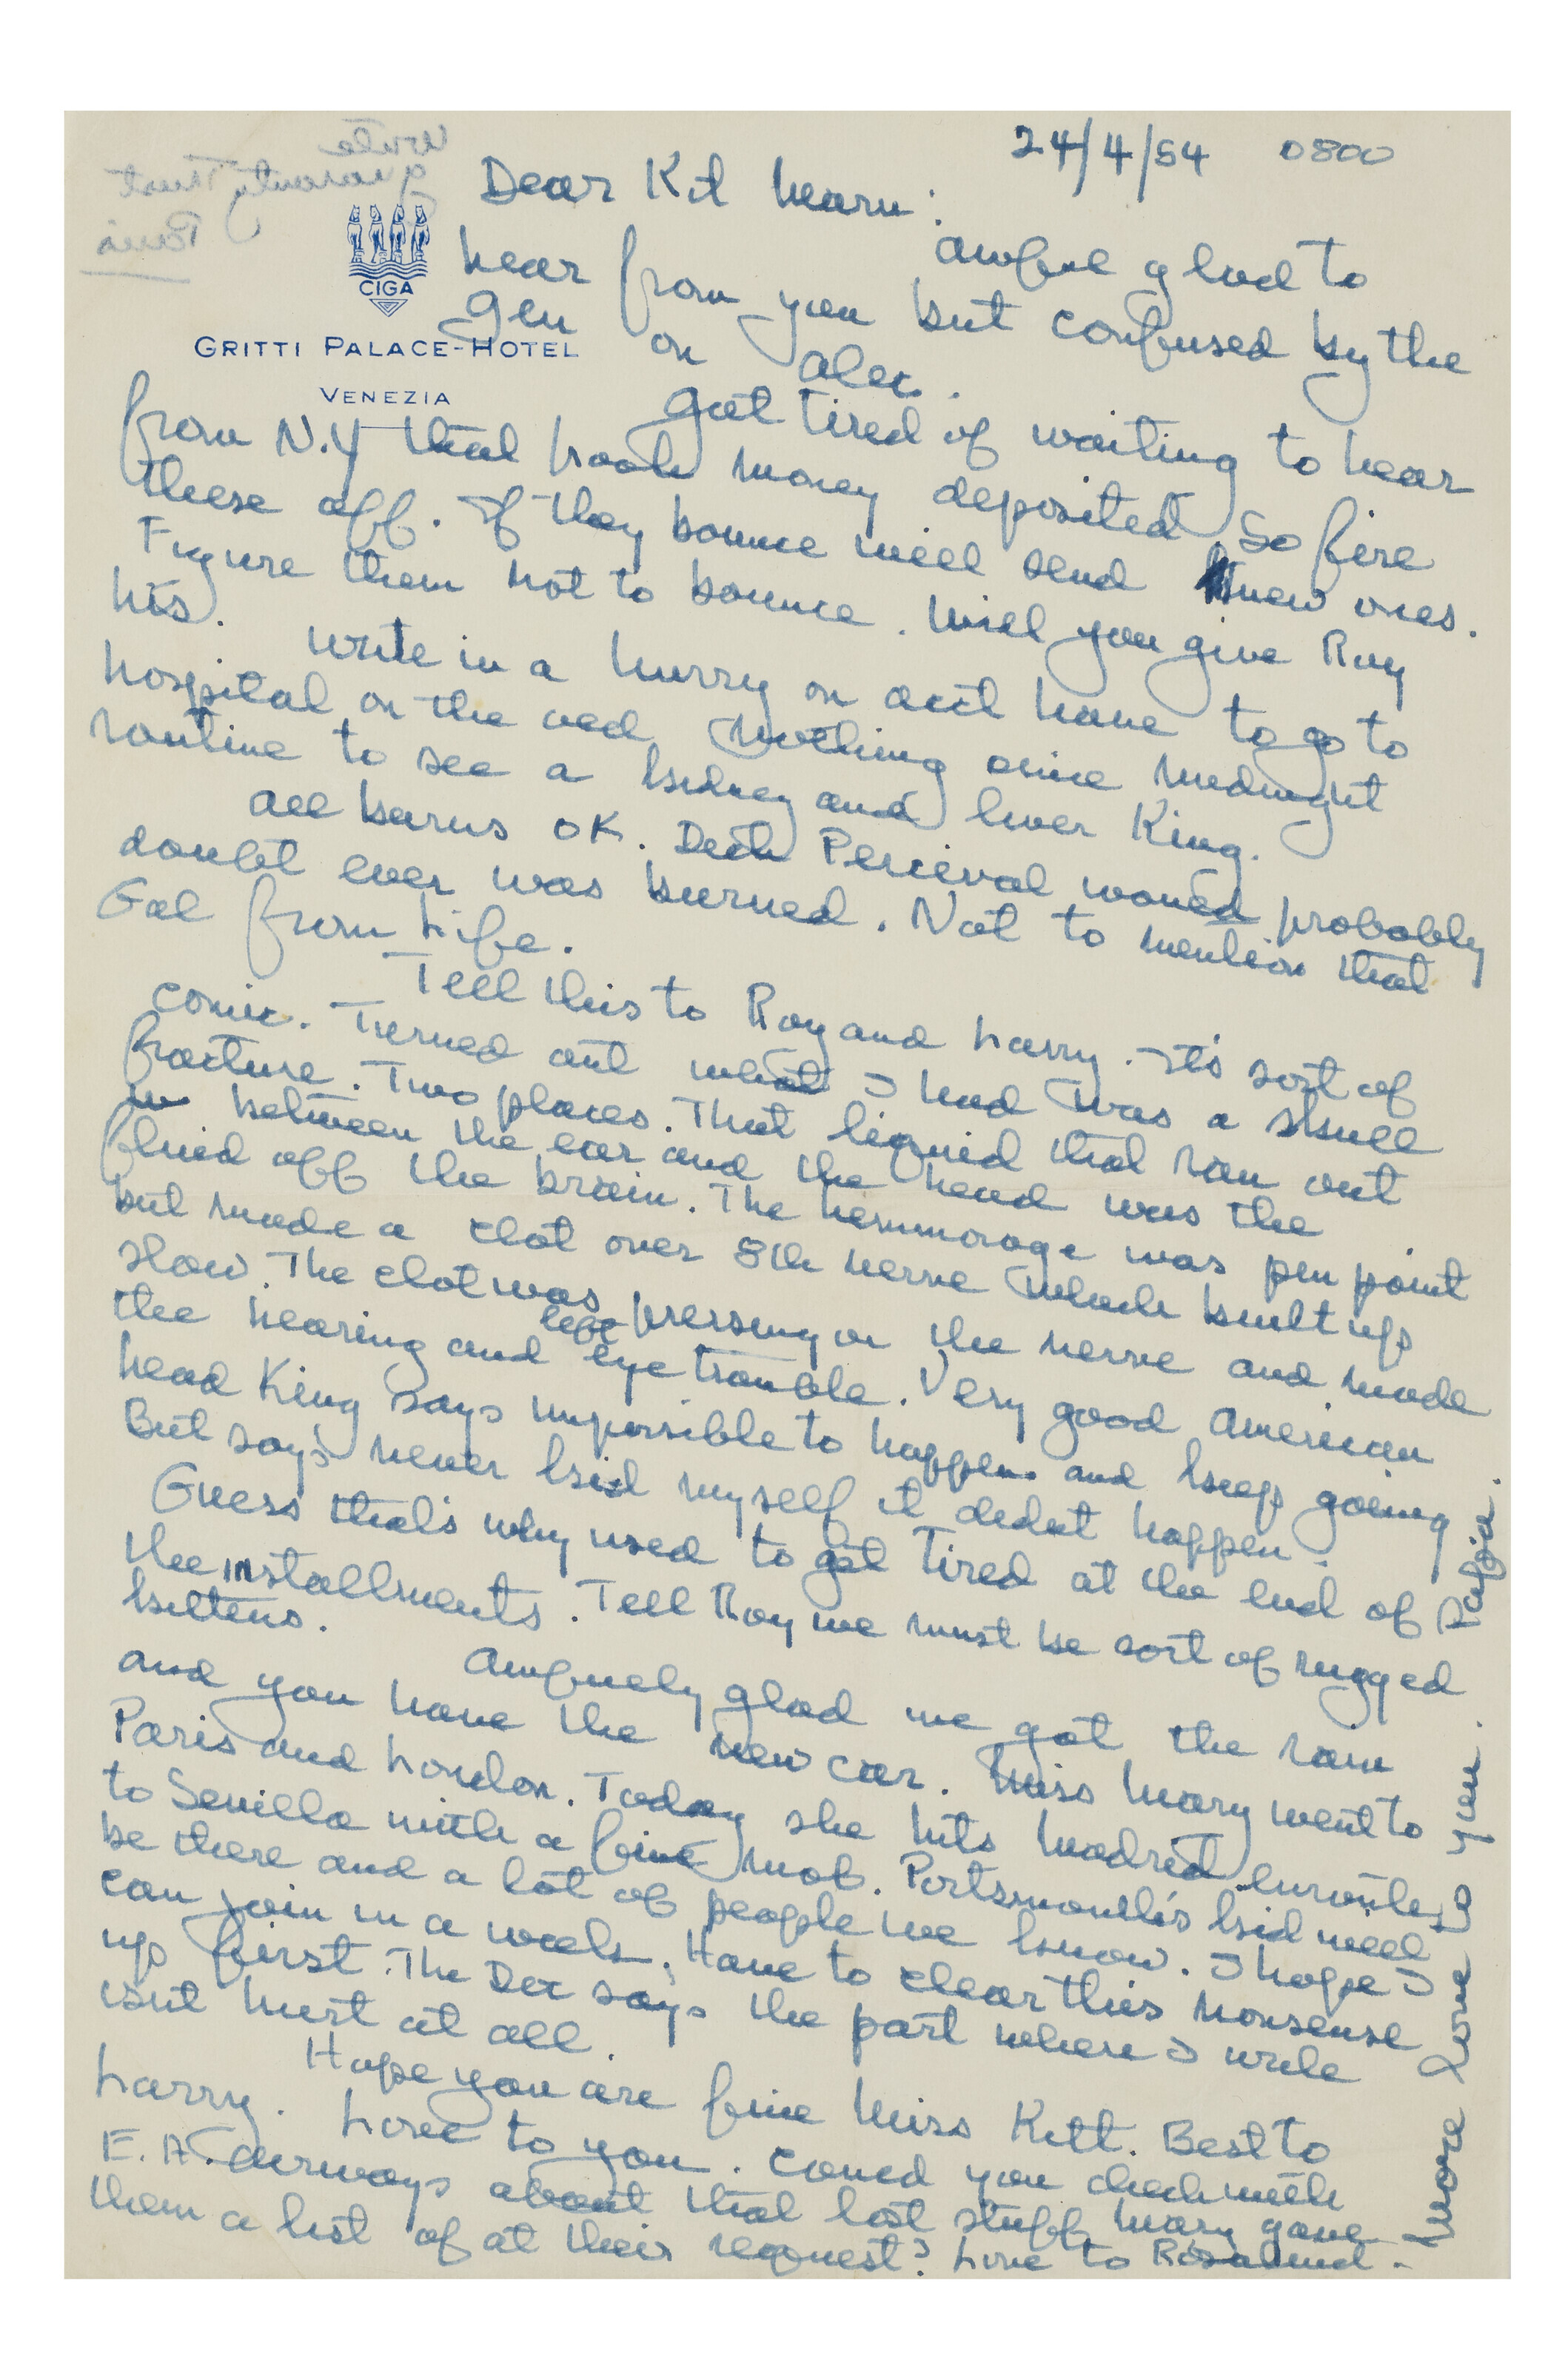 24/4/54 0800
Dear Kit hearn:
awful glad to
hear from you but confused by the
gen on alec.
CIGA
GRITTI PALACE-HOTEL
VENEZIA
Got tired of waiting to hear
from N.Y that book money deposited. So fire
these off. If they bounce will send new ones.
Figure them not to bounce. Will you give Roy
his.
Write in a hurry on acct have to go to
hospital on the Nothing since midnight
routine to see a kidney and liver King.
All burns OK. Percival would probably
doubt ever was burned. Not to mention that
Gal from Life.
Tell this to Roy and Larry. It's sort of
comic. Turned out what I had was a skull
fracture. Two places. That liquid that ran out
in between the ear and the head was the
fluid off the brain. The hemmorage was pen point
but made a clot over 8th nerve which built up
slow. The clot was pressing on the nerve and made
the hearing and left eye trouble. Very good American
head King says impossible to happen and keep going
But say's never kid myself it didnt happen.
Guess that's why used to get tired at the end of
the installments. Tell Roy we must be sort of rugged
kittens.
Awfuely glad we got the rain
and you have the new car. Miss Mary went to
Paris and London. Today she hits Madrid enroute
to Sevilla with a fine mob. Portsmouth's kid will
be there and a lot of people we know. I hope I
can join in a week. Have to clear this nonsense
up first. The Doc say's the part where I write
isnt hurt at all.
Hope you are fine Miss Kitt. Best to
Larry. Love to you. Could you check with
E.A. airways about that lost stuff Mary gave
them a list of at their request? Love to Rosalind.
More Love to you. Papa.
write
guaranty Trust
Paris